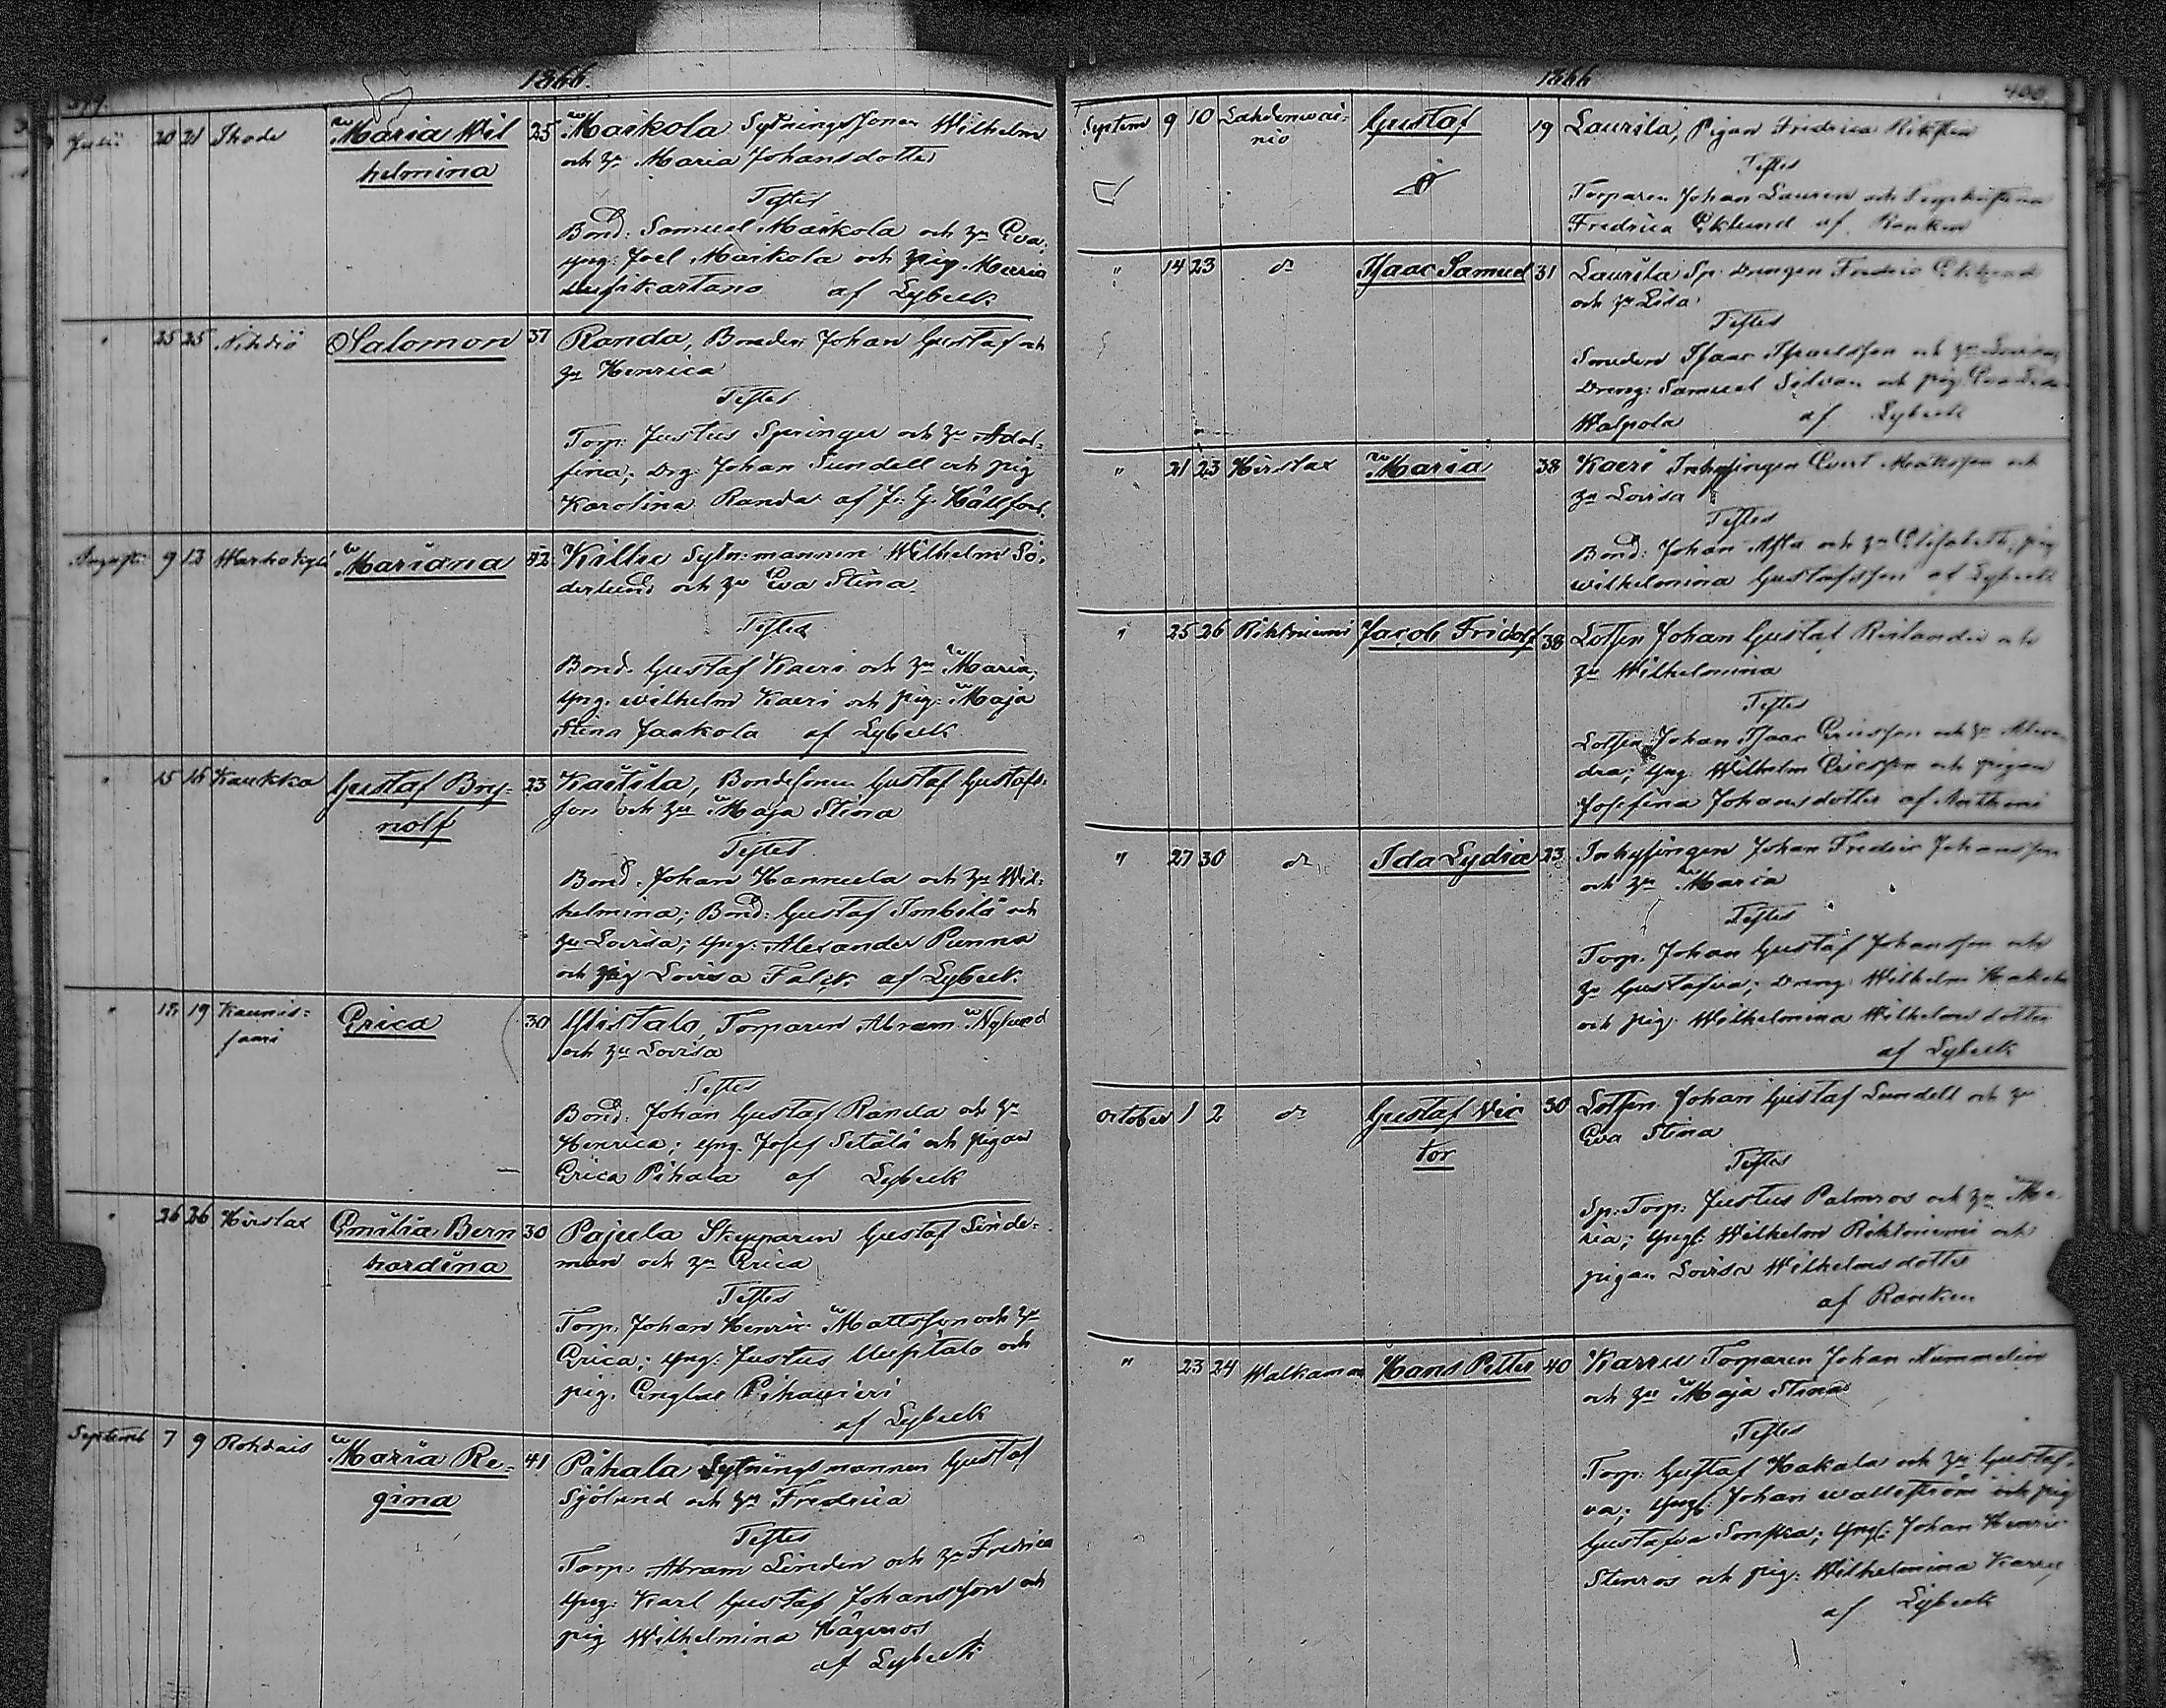 1866.
Julii 20 21 Maria Wil 25 Maikola Sytningssonen Wilhelm
helmina och hu Maria Johansdotter
Testes
Bond: Samuel Maikola och hu Eva;
yng: Joel Maikola och pig Maria
af Lybeck
" 25 25 Nihtiö Salomon 37 Randa, Bonden Johan Gustaf och
hu Henrica
Testes
Torp: Justus Springer och hu Adol=
fina; Drg: Johan Sundell och pig
Karolina Randa af
Augusti 9 12 Mariana 42 Killu Sytn:mannen Wilhelm Sö=
derlund och hu Eva Stina
Testes
Bond. Gustaf Kaeri och hu Maria;
yng. Wilhelm Kaeri och pig: Maja
Stina Jaakola af Lybeck
" 15 Kaukka Gustaf Bry= 23 Bondesonen Gustaf Gustafs=
nolf son och hu Maja Stina
Testes
Bond. Johan Hannula och hu Wil=
helmina; Bond: Gustaf och
hu Lovisa; yng: Alexander Punna
och pig Lovisa Falck af Lybeck
" 18 19 Kaunis= Erica 30 Ylistalo, Torparen Abram Nylund
saari och hu Lovisa
Testes
Bond: Johan Gustaf Randa och hu
Henrica; yng. Josef Setälä och pigan
Erica Pihala af Lybeck
" 26 26 Hirslax Emilia Bern 30 Pajula Skepparen Gustaf Linde=
hardina man och hu Erica
Testes
Torp. Johan Henric Mattsson och hu
Erica; yng: Justus Uusitalo och
pig.
af Lybeck
Septemb 7 9 Rohdais Maria Re= 41 Pihala Sytningsmannen Gustaf
gina Sjölund och hu Fredrica
Testes
Torp. Abram Linden och hu Fredrica
yng: Karl Gustaf Johansson och
pig Wilhelmina Hägeros
af Lybeck
1866 400.
Septem 9 10 Lahdenwai= Gustaf 19 Laurila, Pigan Fredrica
nio
Testes
Torparen Johan Lauren och
Fredrica Eklund af Rancken
" 14 23 do Isaac Samuel 31 Laurila Sp. drengen Fredric
och hu Lisa
Testes
Smeden Isaac och hu
Dreng: Samuel och pig
Walpola af Lybeck
" 21 23 Hirslax Maria 38 Kaeri Inhysingen Evert Mattsson och
hu Lovisa
Testes
Bond: Johan och hu Elisabeth, pig
Wilhelmina Gustafsson af Lybeck
" 25 26 Riktniemi Jacob Fridolf 38 Lotsen Johan Gustaf och
hu Wilhelmina
Testes
Lotsen Johan Isaac Ericsson och hu
dra; yng. Wilhelm Ericsson och pigan
Josefina Johansdotter af
" 27 30 do Ida Lydia 23 Inhysingen Johan Fredric Johansson
och hu Maria
Testes
Torp. Johan Gustaf Johansson och
hu Gustafva; dreng: Wilhelm
och pig. Wilhelmina Wilhelmsdotter
af Lybeck
October 1 2 do Gustaf Vic 30 Lotsen Johan Gustaf Sundell och hu
tor Eva Stina
Testes
Sp: Torp: Justus Palmros och hu Ma
ria; yngl: Wilhelm Riktniemi och
pigan Lovisa Wilhelmsdotter
af Rancken
" 23 24 Hans Petter 40 Karru Torparen Johan Nummelin
och hu Maja Stina
Testes
Torp: Gustaf Hakala och hu Gustaf=
va; yngl: Johan Wallström och pig
Gustafva yngl: Johan Henric
Stenros och pig: Wilhelmina Karru
af Lybeck